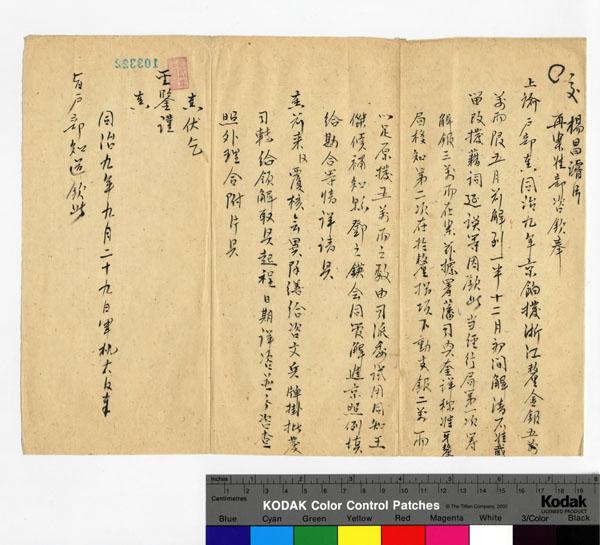 交 楊昌濬片
再案准部咨欽奉
上諭戶部奏同治九年京餉撥浙江釐金銀五萬
兩限五月前解到一半十二月初間解清不准截
留改撥藉詞延誤等因欽此當經行局第一次籌
解銀三萬兩在案茲據署藩司興奎詳稱准牙釐
局移知第二次在於釐捐項下動支銀二萬兩
以足原撥五萬兩之數由司派委試用同知王
傑候補知縣鄧之鍈會同管解進京照例填
給勘合等情詳請具
奏前來臣覆核無異除繕給咨文兵牌掛批發
司轉給領解取具起程日期詳咨並分咨查
照外理合附片具
奏伏乞
聖鑒謹
奏
同治九年九月二十九日軍机大臣奉
旨戶部知道欽此
103322
Inches 1 2 3 4 5 6 7
Centimetres 1 2 3 4 5 6 7 8 9 10 11 12 13 14 15 16 17 18 19
KODAK Color Control Patches
© The Tiffen Company, 2000
Kodak
LICENSED PRODUCT
Blue Cyan Green Yellow Red Magenta White 3/Color Black